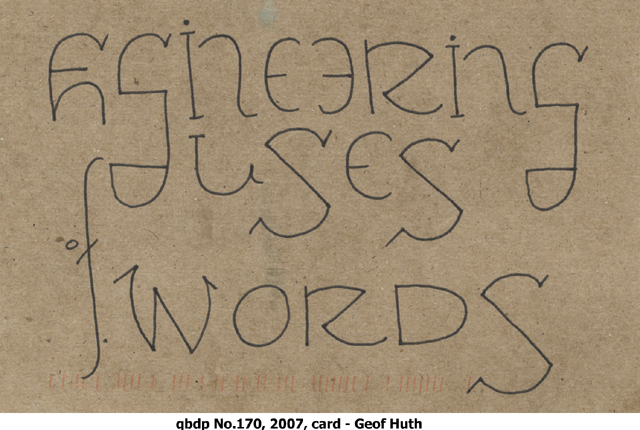 ENGiNEERiNG
USES
of
WORDS
qbdp No.170, 2007, card - Geof Huth